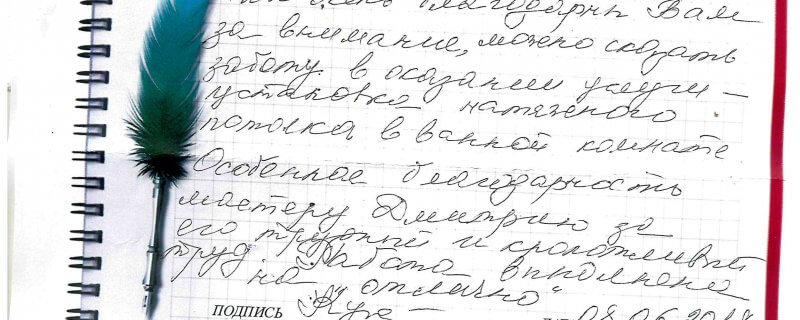 очень благодарны Вам
за внимание, можно сказать
заботу в оказании услуги –
установка натяжного
потолка в ванной комнате.
Особенное благодарность
мастеру Дмитрию за
его трудный и кропотливый
труд. Работа выполнена
на "отлично"
ПОДПИСЬ